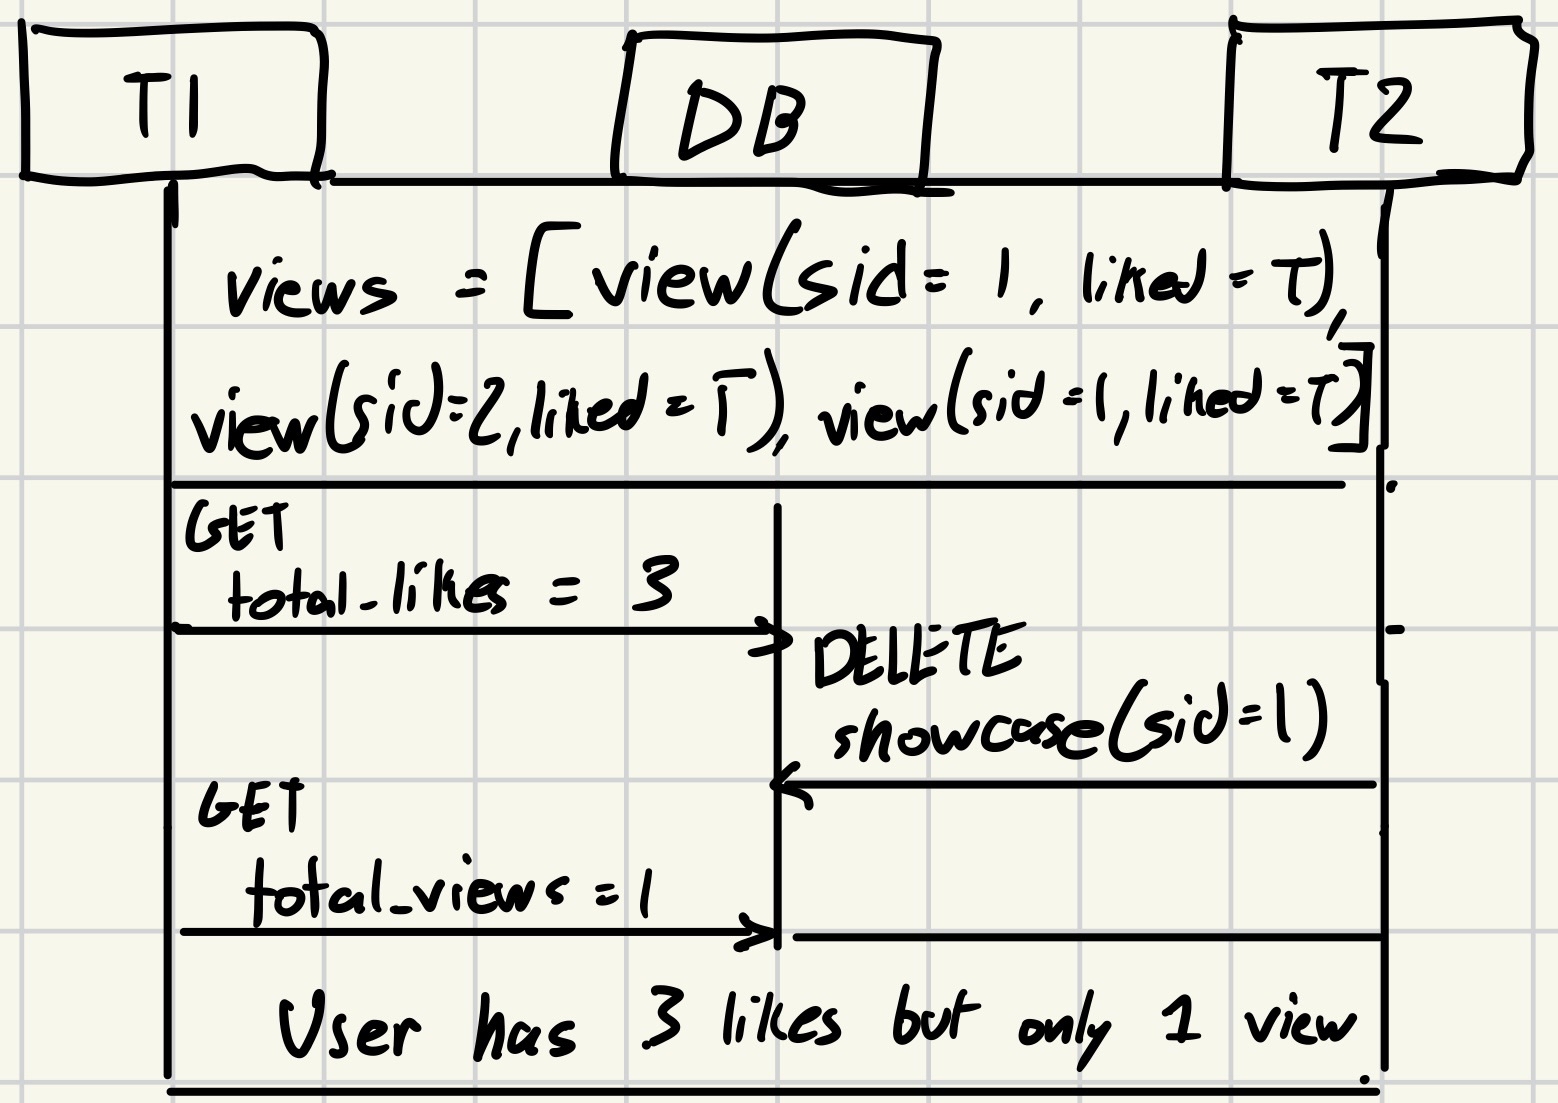 T1
DB
T2
views = [view(sid = 1, liked = T),
view(sid=2, liked = T), view(sid=1, liked=T)]
GET
total_likes = 3
DELETE
showcase(sid=1)
GET
total_views = 1
User has 3 likes but only 1 view